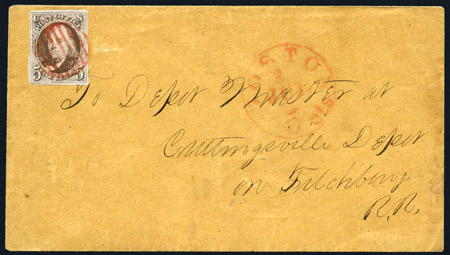 POST OFFICE
5 5
BOSTON
To Depot Master at
Cuttingsville Depot
on Fitchburg
R.R.